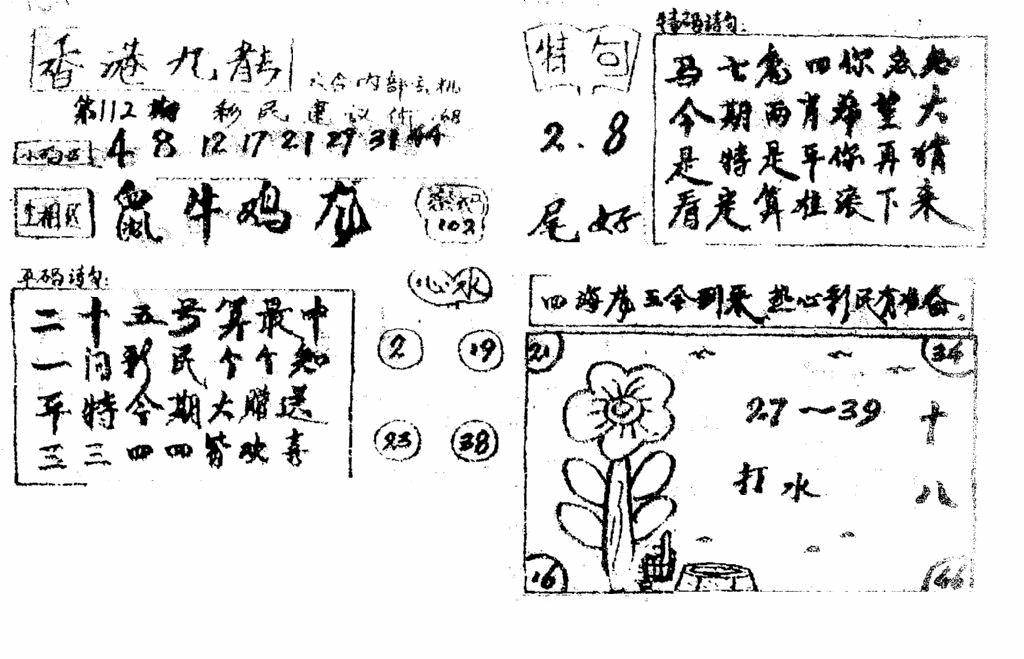 香港九龍
六合内部玄机
第112期 彩民建议价:68
4 8 12 17 21 29 31 44
生相区
鼠牛鸡龙
102
平码诗句:
二十五号算最中
一问彩民个个知
平特今期大赠送
三三四四皆欢喜
心水
2 19
23 38
特句
2.8
尾好
特码诗句:
马七兔四你
今期两肖希望大
是特是平你再猜
看定算准滚下来
四海龙王今到来 热心彩民有准备。
21 34
27～39
十八
打水
16 46